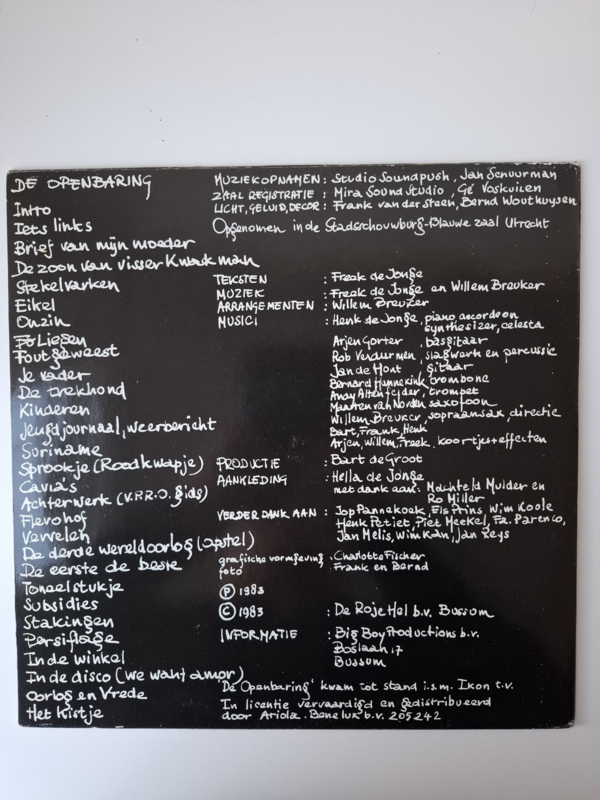 DE OPENBARING
Intro
Iets links
Brief van mijn moeder
De zoon van visser Kwakman
Stekelvarken
Eikel
Onzin
Fout geweest
Je vader
De trekhond
Kinderen
Jeugdjournaal, weerbericht
Suriname
Sprookje (Roodkwapje)
Cavia's
Achterwerk (V.P.R.O. gids)
Flevohof
Vervelen
De derde wereldoorlog (opstel)
De eerste de beste
Toneelstukje
Subsidies
Stakingen
Persiflage
In de winkel
In de disco (we want amor)
Oorlog en Vrede
Het kistje
MUZIEKOPNAMEN : Studio Soundpush, Jan Schuurman
ZAALREGISTRATIE : Mira Sound Studio, Gé Voskuilen
LICHT, GELUID, DECOR : Frank van der Steen, Bernd Wouthuysen
Opgenomen in de Stadsschouwburg-Blauwe zaal Utrecht
TEKSTEN : Freek de Jonge
MUZIEK : Freek de Jonge en Willem Breuker
ARRANGEMENTEN : Willem Breuker
MUSICI : Henk de Jonge, piano, accordeon
synthesizer, celesta
Arjen Gorter, basgitaar
Rob Verdurmen, slagwerk en percussie
Jan de Hont, gitaar
Bernard Hunnekink, trombone
Andy Altenfelder, trompet
Maarten van Norden, saxofoon
Willem Breuker, sopraansax, directie
Bart, Frank, Henk
Arjen, Willem, Freek, koortjes+effecten
PRODUCTIE : Bart de Groot
AANKLEDING : Hella de Jonge
met dank aan: Machteld Mulder en
Ro Miller
VERDER DANK AAN : Jop Pannekoek, Els Prins, Wim Koole
Henk Petiet, Piet Meekel, Fa. Parenco,
Jan Melis, Wim Kan, Jan Reys
grafische vormgeving : Charlotte Fischer
foto : Frank en Bernd
Ⓟ 1983
© 1983 : De Roje Hel b.v. Bussum
INFORMATIE : Big Boy Productions b.v.
Boslaan 17
Bussum
'De Openbaring' kwam tot stand i.s.m. Ikon t.v.
In licentie vervaardigd en gedistribueerd
door Ariola. Benelux b.v. 205242